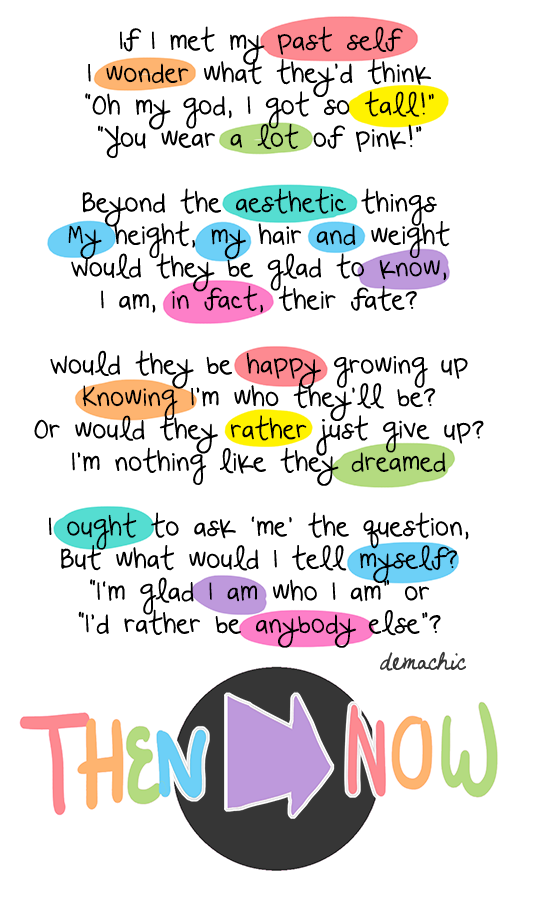 If I met my past self
I wonder what they'd think
"Oh my god, I got so tall!"
"You wear a lot of pink!"
Beyond the aesthetic things
My height, my hair and weight
Would they be glad to know,
I am, in fact, their fate?
Would they be happy growing up
Knowing I'm who they'll be?
Or would they rather just give up?
I'm nothing like they dreamed
I ought to ask 'me' the question,
But what would I tell myself?
"I'm glad I am who I am" or
"I'd rather be anybody else"?
demachic
THEN NOW